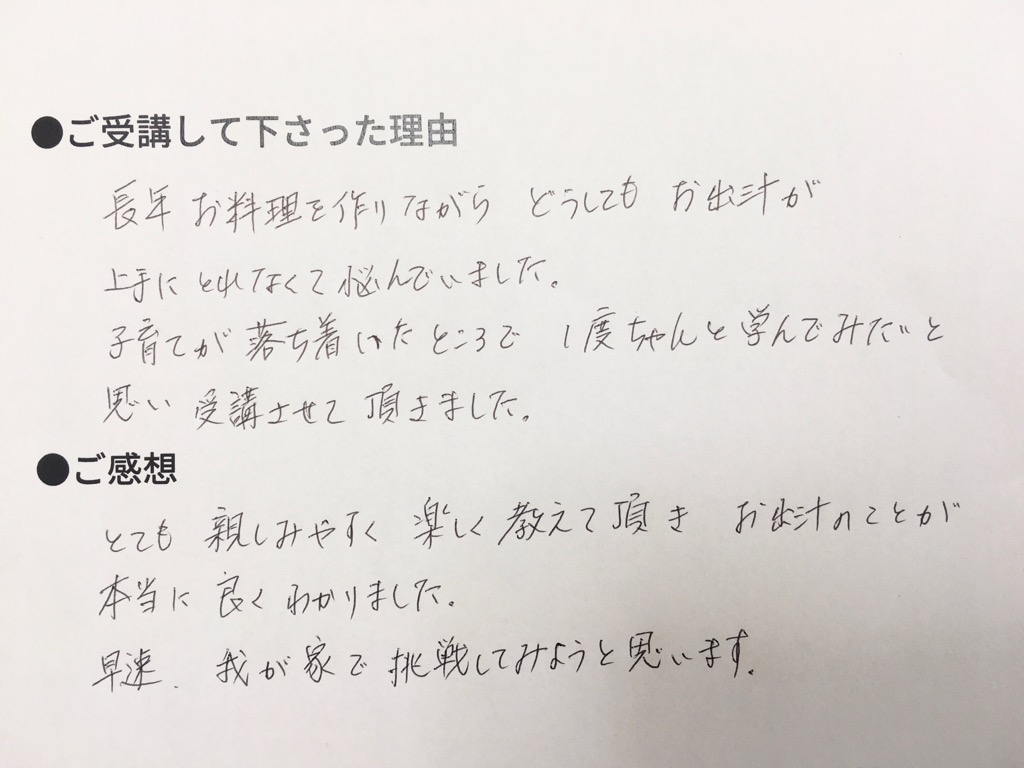 ●ご受講して下さった理由
長年 お料理を作りながら どうしても お出汁が
上手に とれなくて 悩んでいました。
子育てが 落ち着いたところで 1度ちゃんと学んでみたいと
思い 受講させて 頂きました。
●ご感想
とても 親しみやすく 楽しく 教えて頂き お出汁のことが
本当に 良く わかりました。
早速、我が家で 挑戦してみようと思います。